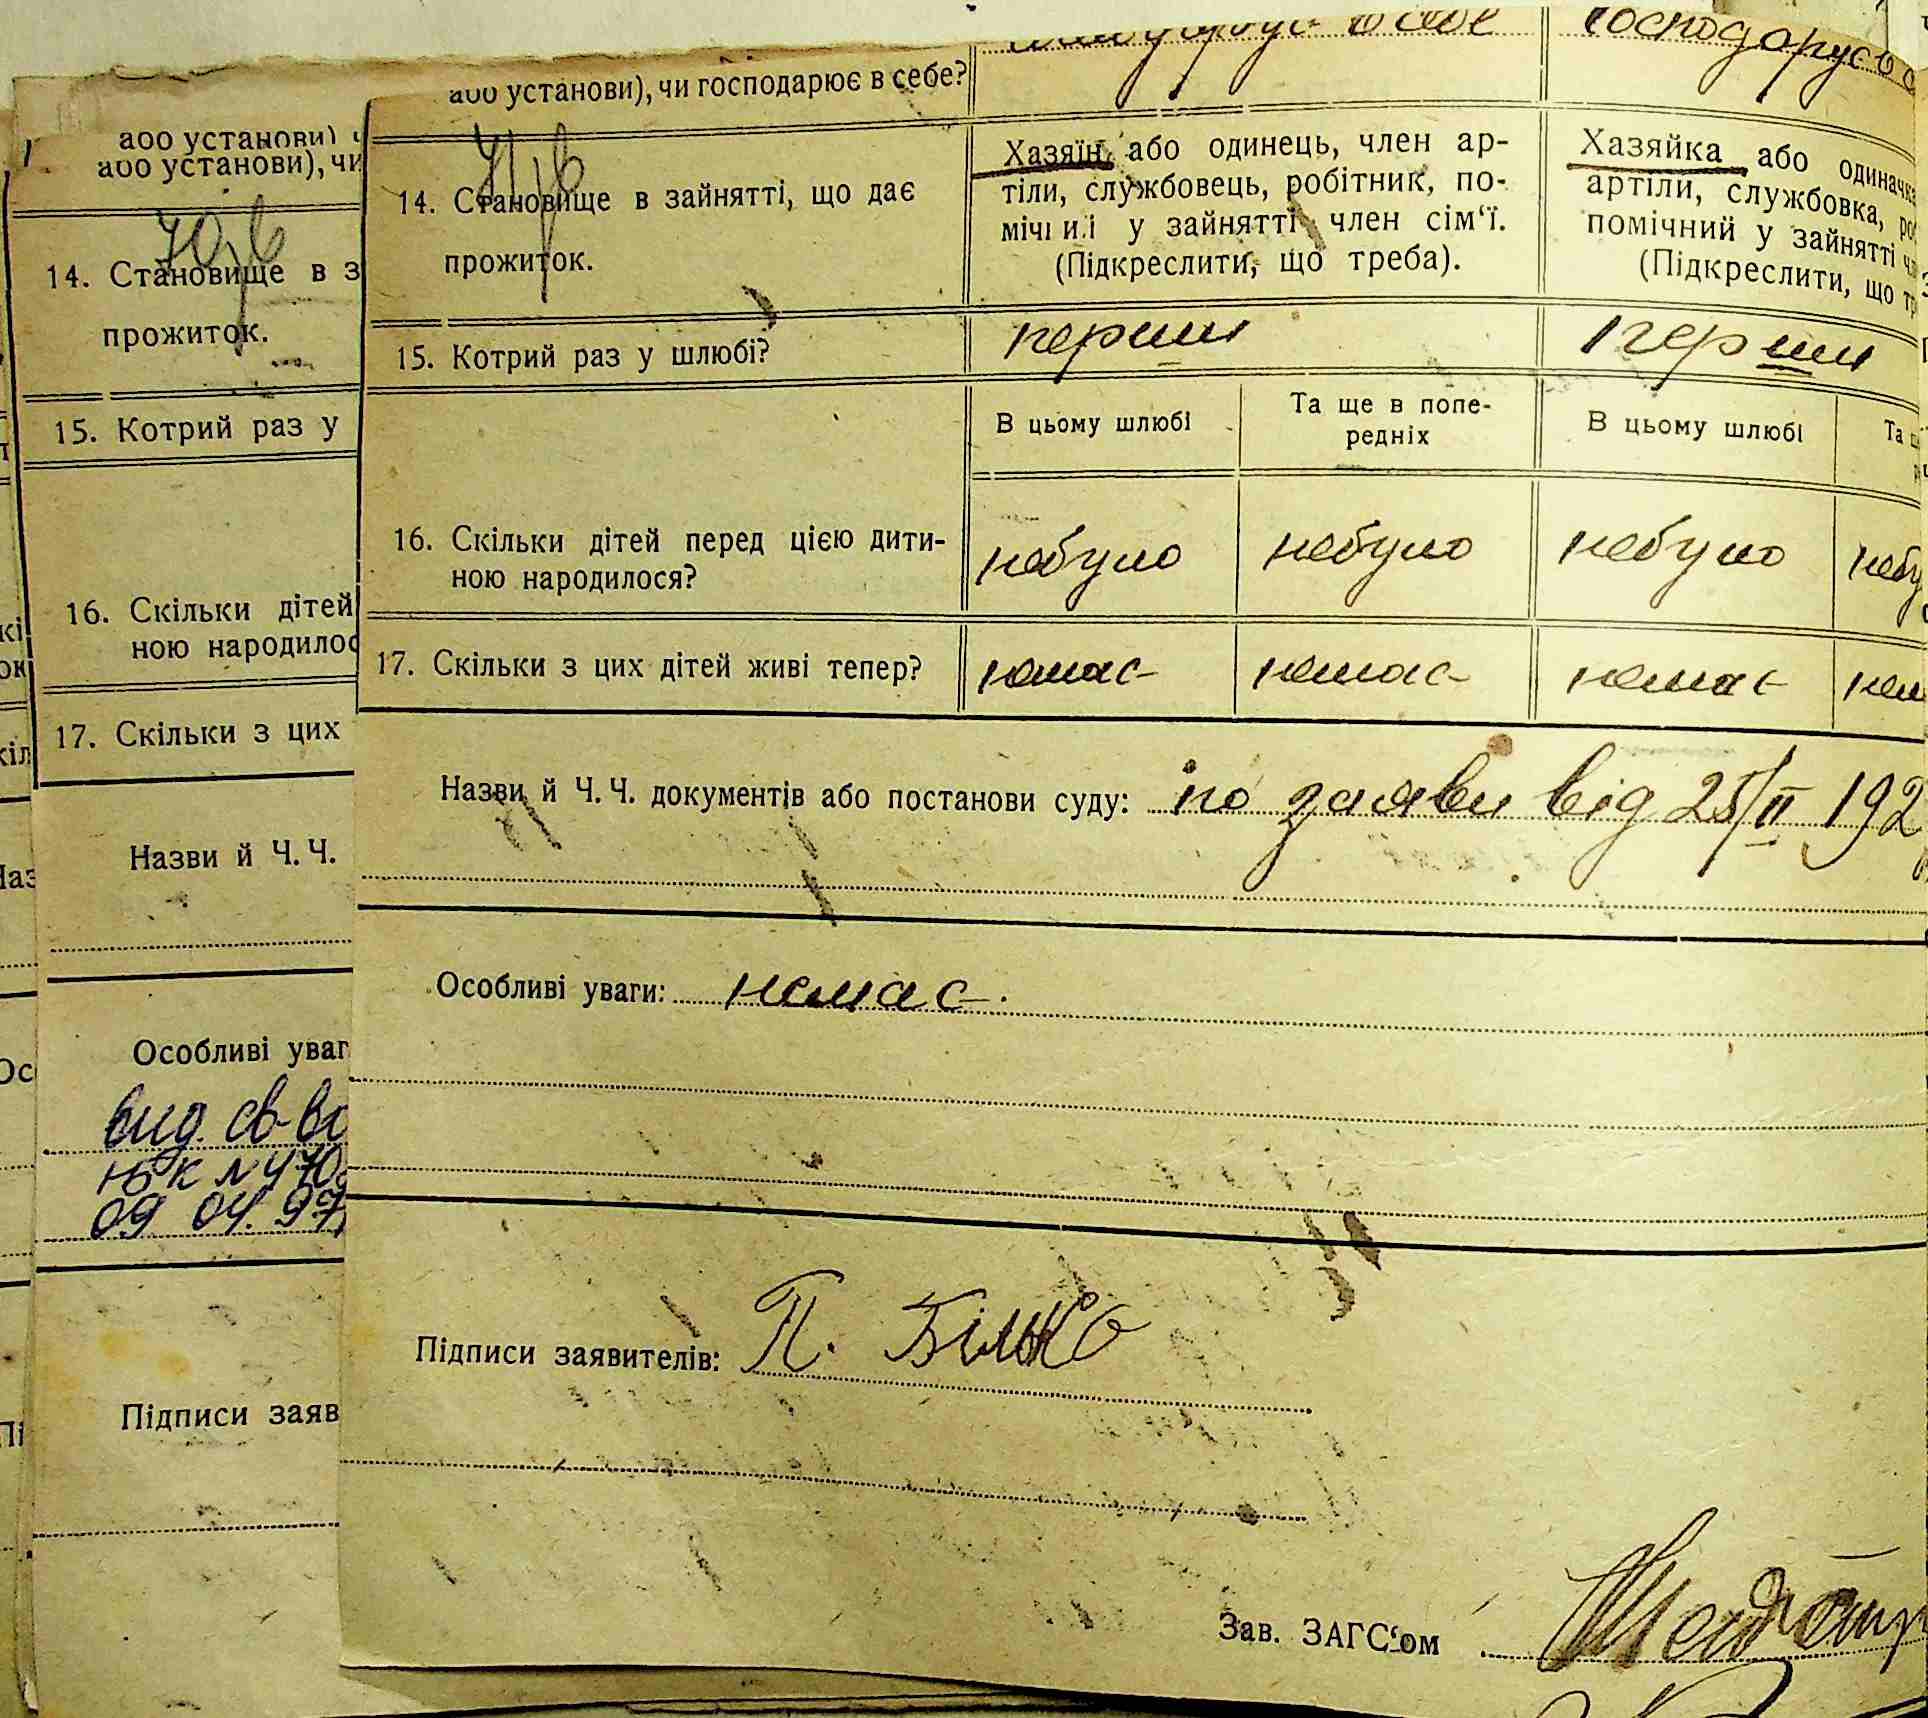 або установи), чи господарює в себе?
господарує в себе
господарує в с
14. Становище в зайнятті, що дає
прожиток.
Хазяїн або одинець, член ар-
тіли, службовець, робітник, по-
мічний у зайнятті член сім‘ї.
(Підкреслити, що треба).
Хазяйка або одиначка
артіли, службовка, роб
помічний у зайнятті чл
(Підкреслити, що тр
15. Котрий раз у шлюбі?
перший
перший
В цьому шлюбі
Та ще в попе-
редніх
В цьому шлюбі
Та щ
16. Скільки дітей перед цією дити-
ною народилося?
небуло
небуло
небуло
небу
17. Скільки з цих дітей живі тепер?
немає
немає
немає
нем
Назви й Ч. Ч. документів або постанови суду: по заяви від 25/ІІ 192
Особливі уваги: немає.
Підписи заявителів: П. Білько
Зав. ЗАГС‘ом
або установи) ч
або установи), чи
14. Становище в з
прожиток.
15. Котрий раз у
16. Скільки дітей
ною народилос
17. Скільки з цих
Назви й Ч. Ч.
Особливі уваг
вид. св-во
09 04. 97
Підписи заяв